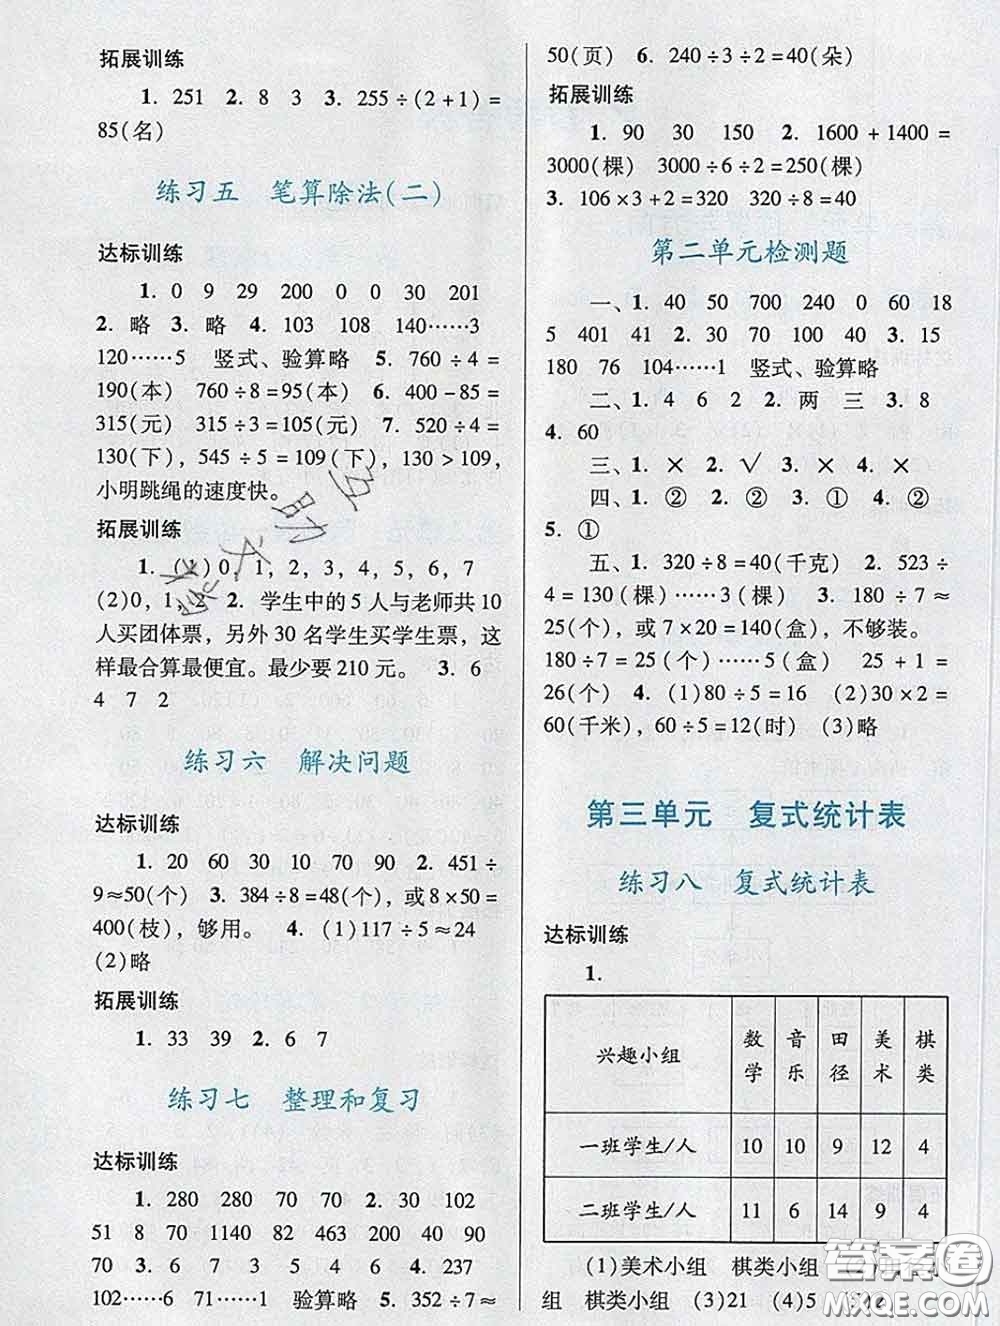 拓展训练
1. 251 2. 8 3 3. 255÷(2+1)=
85(名)
练习五 笔算除法(二)
达标训练
1. 0 9 29 200 0 0 30 201
2. 略 3. 略 4. 103 108 140……3
120……5 竖式、验算略 5. 760÷4=
190(本) 760÷8=95(本) 6. 400-85=
315(元) 315÷3=105(元) 7. 520÷4=
130(下), 545÷5=109(下), 130>109,
小明跳绳的速度快。
拓展训练
1. 0, 1, 2, 3, 4, 5, 6, 7
(2)0, 1, 2. 学生中的5人与老师共10
人买团体票，另外30名学生买学生票，这
样最合算最便宜。最少要210元。 3. 6
4 7 2
练习六 解决问题
达标训练
1. 20 60 30 10 70 90 2. 451÷
9≈50(个) 3. 384÷8=48(个) 8×50=
400(枝), 够用。 4. (1)117÷5≈24
(2)略
拓展训练
1. 33 39 2. 6 7
练习七 整理和复习
达标训练
1. 280 280 70 70 2. 30 102
51 8 70 1140 82 463 200 40
70 3. 6 7 3 5 4 6 4. 237
102……6 71……1 验算略 5. 352÷7≈
50(页) 6. 240÷3÷2=40(朵)
拓展训练
1. 90 30 150 2. 1600+1400=
3000(棵) 3000÷6÷2=250(棵)
3. 106×3+2=320 320÷8=40
第二单元检测题
一、1. 40 50 700 240 0 60 18
5 401 41 2. 30 70 100 40 3. 15
180 76 104……1 竖式、验算略
二、1. 4 6 2 2. 两 三 3. 8
4. 60
三、1. × 2. √ 3. × 4. ×
四、1. ② 2. ② 3. ① 4. ②
5. ①
五、1. 320÷8=40(千克) 2. 523÷
4=130(棵)……3(棵) 3. 180÷7≈
25(个), 或7×20=140(盒), 不够装。
180÷7=25(个)……5(盒) 25+1=
26(个) 4. (1)80÷5=16 (2)30×2=
60(千米), 60÷5=12(时) (3)略
第三单元 复式统计表
练习八 复式统计表
达标训练
1.
兴趣小组 数学 音乐 田径 美术 棋类
一班学生/人 10 10 9 12 4
二班学生/人 11 6 14 9 4
(1)美术小组 棋类小组
组 棋类小组 (3)21 (4)5
答案圈
MXQE.COM